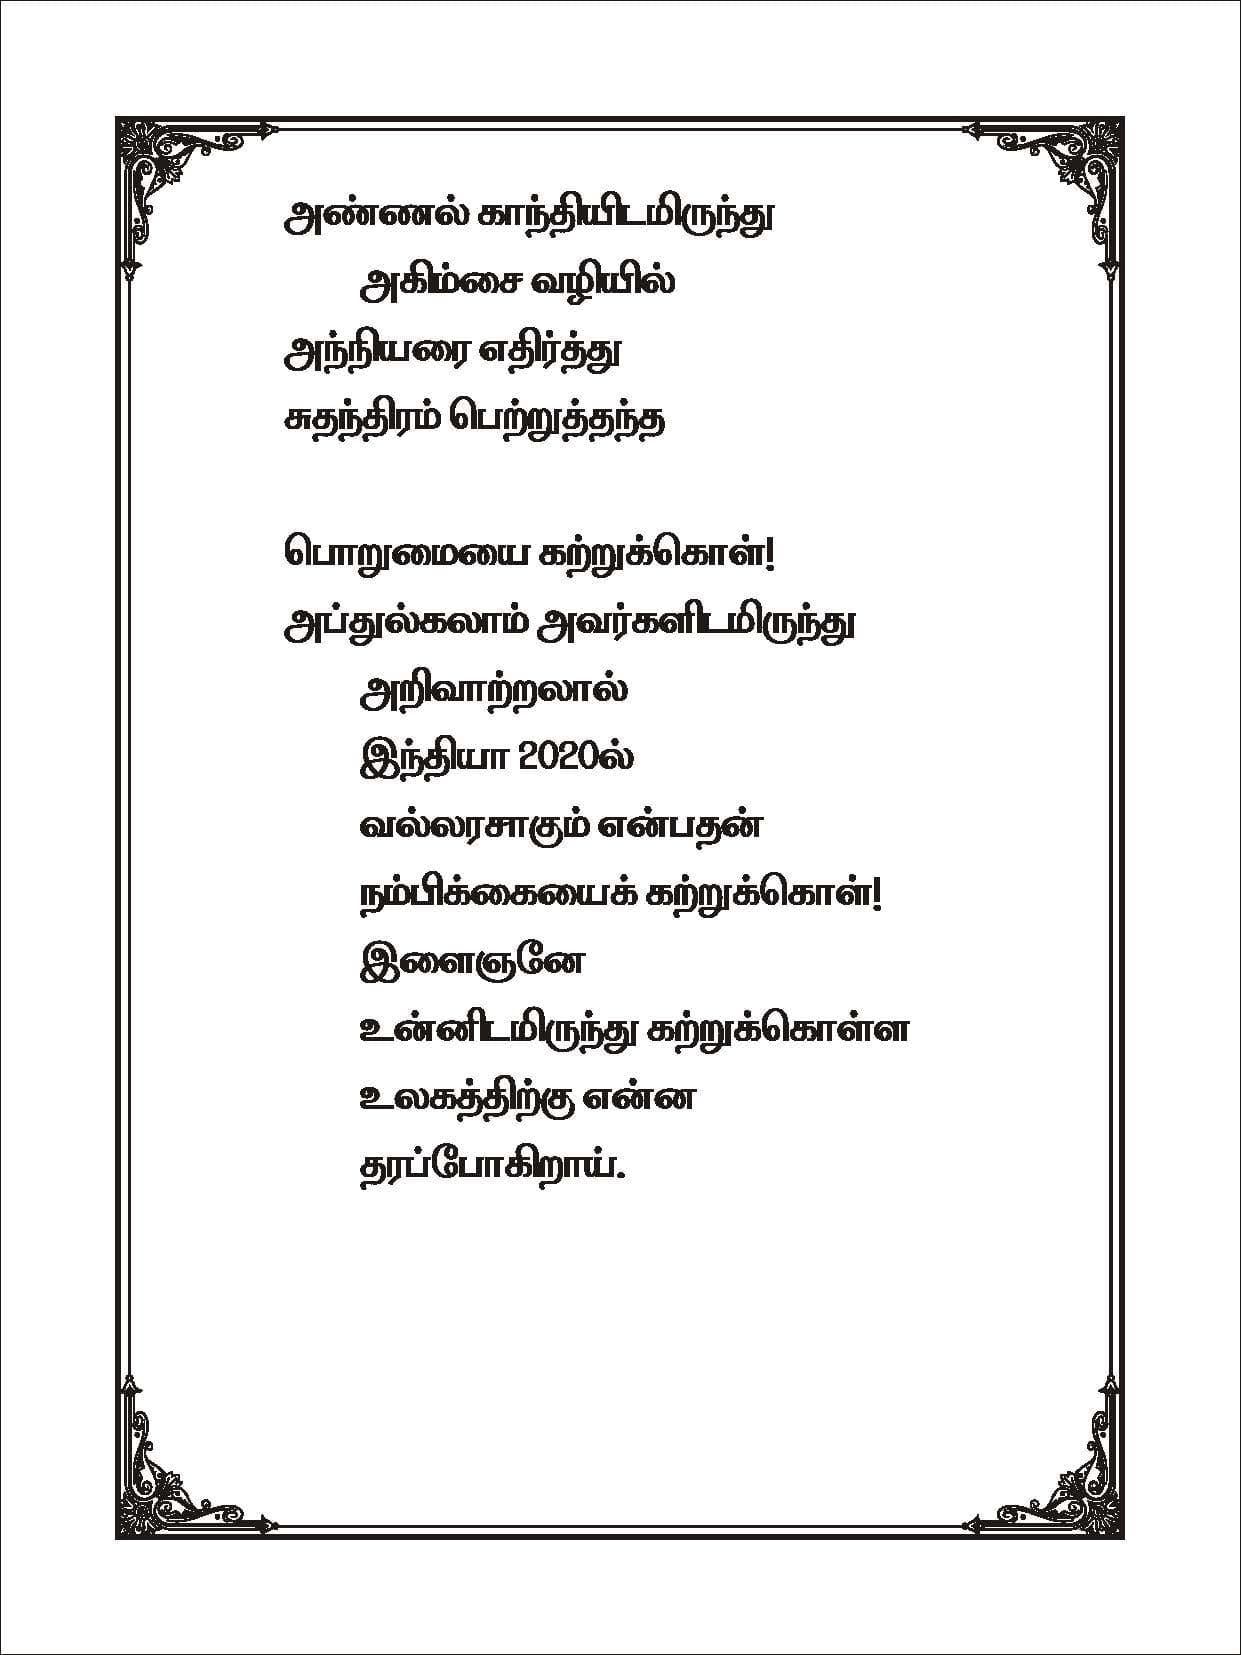 அண்ணல் காந்தியிடமிருந்து
அகிம்சை வழியில்
அந்நியரை எதிர்த்து
சுதந்திரம் பெற்றுத்தந்த
பொறுமையை கற்றுக்கொள்!
அப்துல்கலாம் அவர்களிடமிருந்து
அறிவாற்றலால்
இந்தியா 2020ல்
வல்லரசாகும் என்பதன்
நம்பிக்கையைக் கற்றுக்கொள்!
இளைஞனே
உன்னிடமிருந்து கற்றுக்கொள்ள
உலகத்திற்கு என்ன
தரப்போகிறாய்.